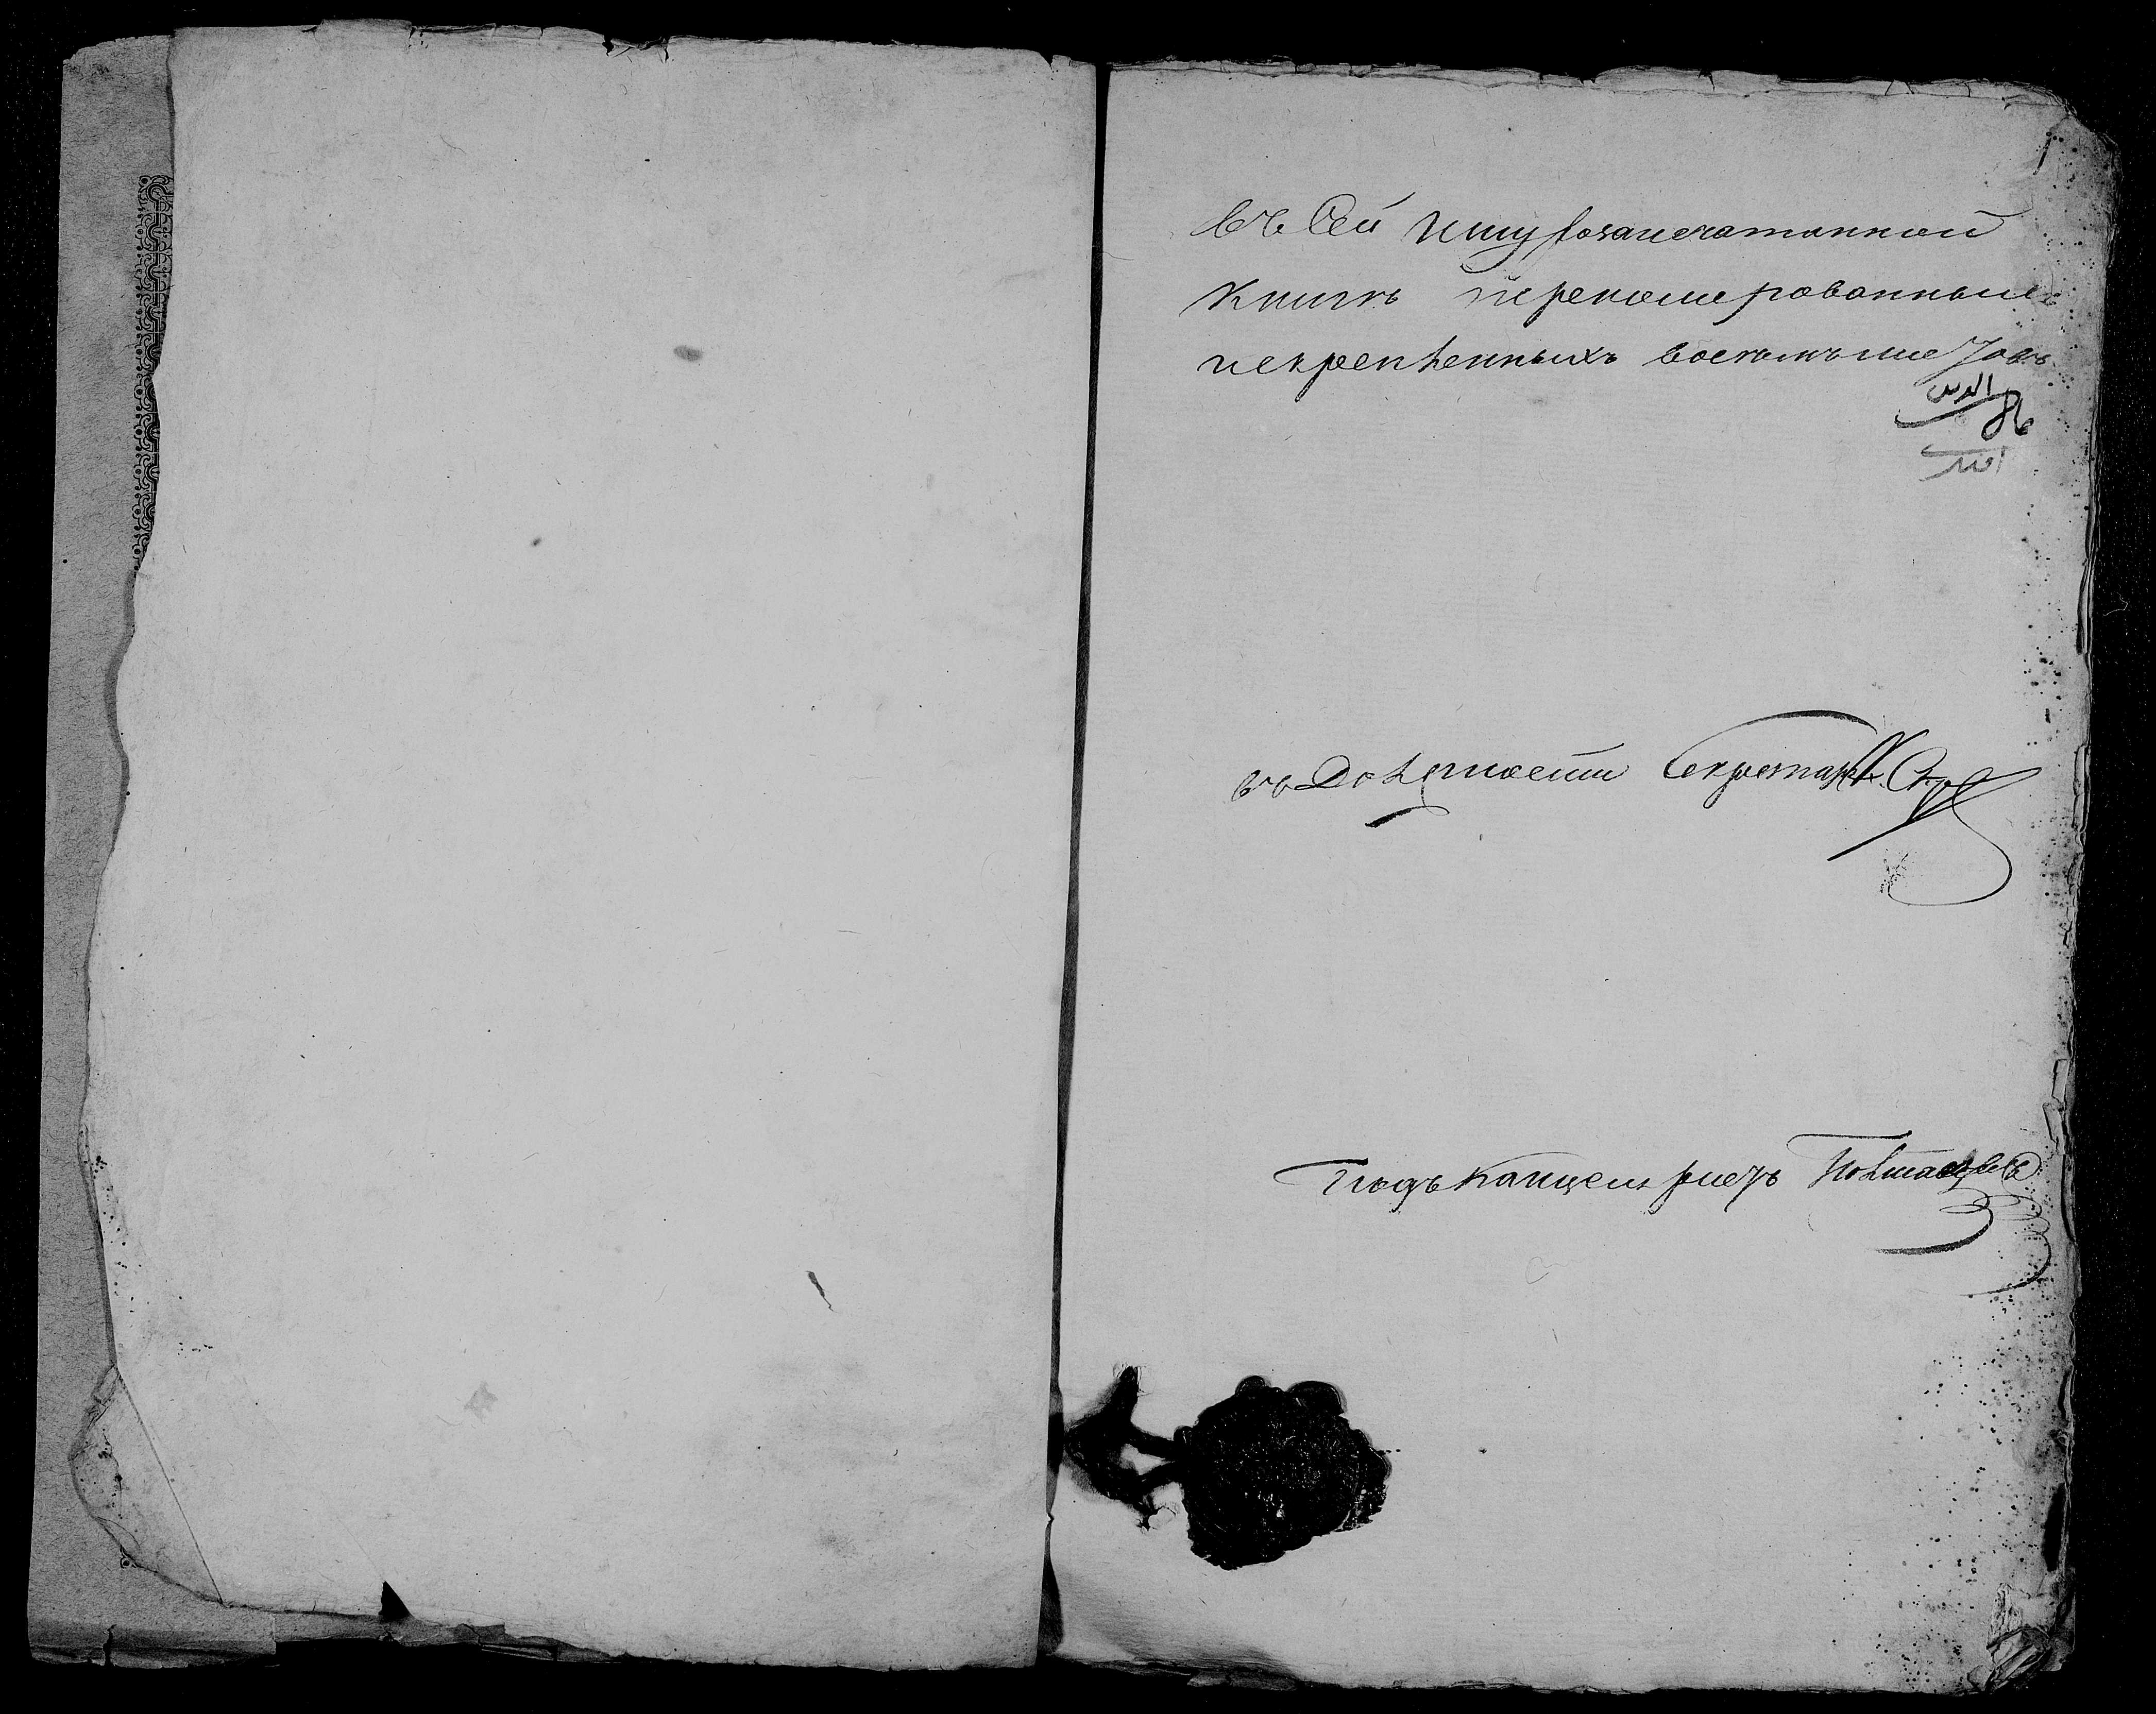 1
въ Сей шнурозапечатанной
книгѣ перенумерованныхъ
искрепленныхъ восемь листовъ
86
въ Должности Секретаря
Подъканцеляристъ Полтавцевъ